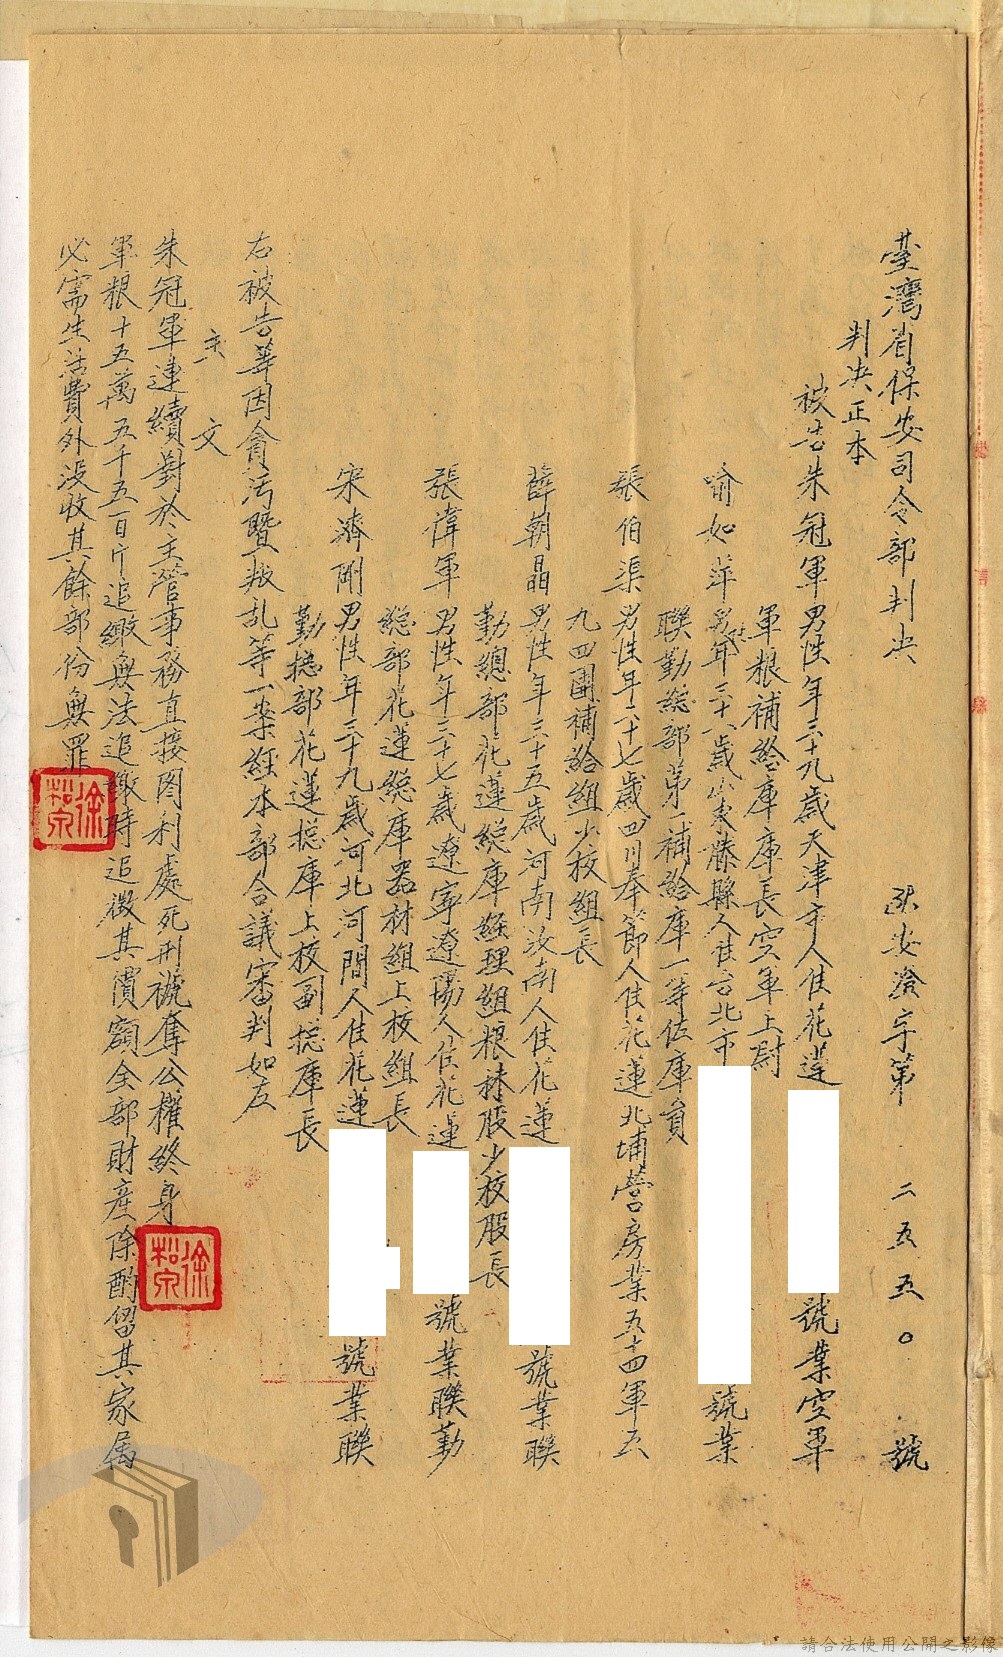 臺灣省保安司令部判決 安澄字第 二五五〇 號
判決正本
被告朱冠軍男性年三十九歲天津市人住花蓮 號業空軍
軍粮補給庫庫長空軍上尉
喻如萍男性年三十六歲山東滕縣人住台北市 號業
聯勤總部第一補給庫一等佐庫員
張伯渠男性年二十七歲四川奉節人住花蓮北埔營房業五十四軍五
九四團補給組少校組長
薛朝晶男性年三十五歲河南汝南人住花蓮 號業聯
勤總部花蓮總庫經理組粮秣股少校股長
張偉軍男性年三十七歲遼寧遼陽人住花蓮 號業聯勤
總部花蓮總庫器材組上校組長
宋濟剛男性年三十九歲河北河間人住花蓮 號業聯
勤總部花蓮總庫上校副總庫長
右被告等因貪污暨叛乱等一案經本部合議審判如左
主文
朱冠軍連續對於主管事務直接圖利處死刑褫奪公權終身
軍粮十五萬五千五百斤追繳無法追繳時追徵其價額全部財產除酌留其家属
必需生活費外没收其餘部份無罪
徐松
徐松
請合法使用公開之影像